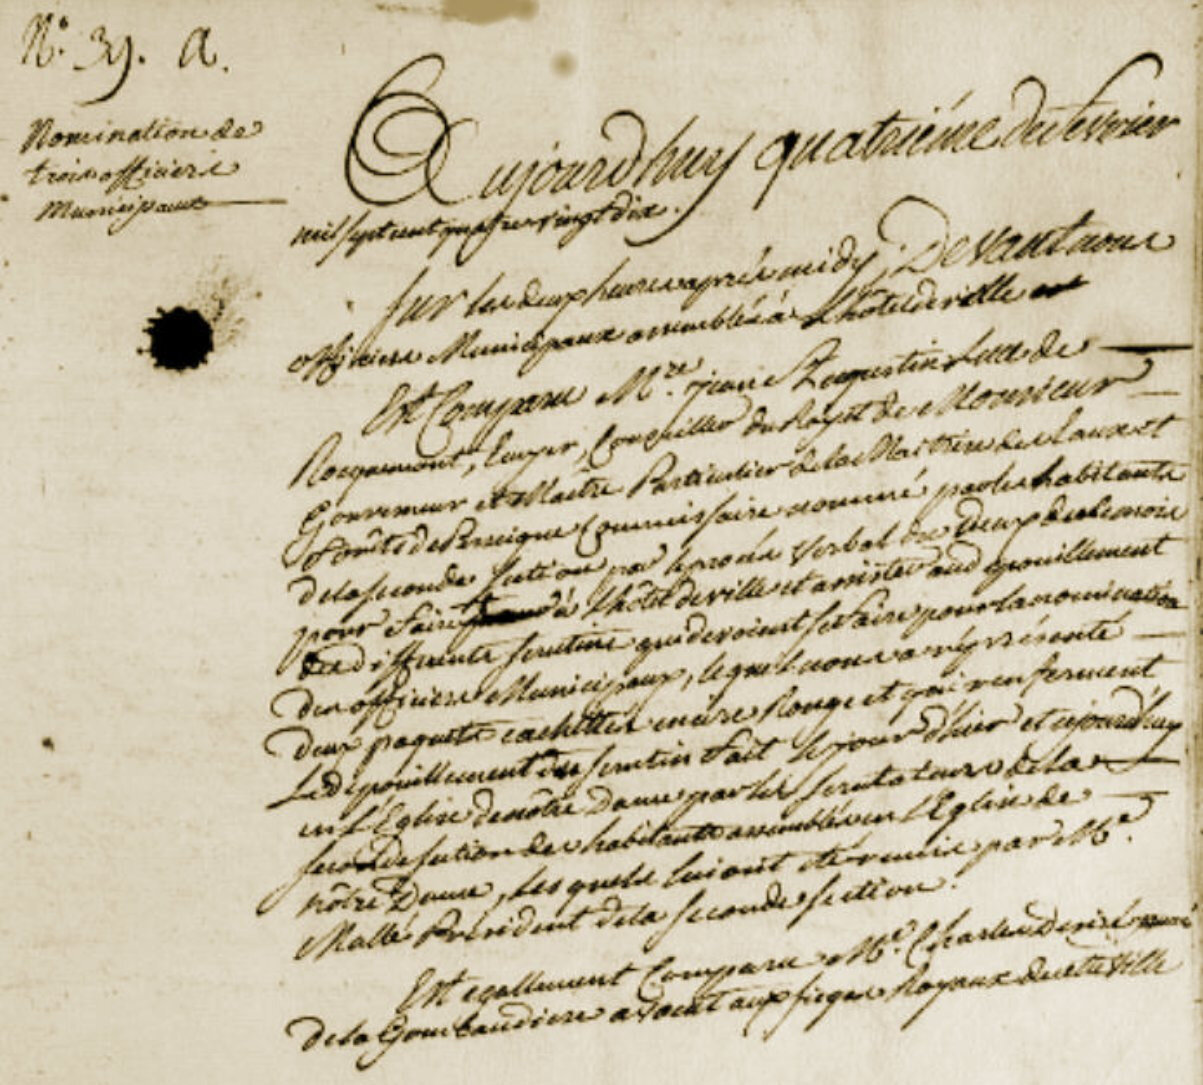 N.° 39. a.
Nomination de
trois officiers
Municipaux
Aujourd'huy quatriéme de fevrier
mil sept cent quatre vingt dix.
Sur les deux heures après midy, Devant nous
officiers Municipaux assemblés à l'hôtel de ville
Est Comparu M.re jean Augustin Luc de
Rocquemont, Ecuyer, Conseiller du Roy et de Monsieur
Gouverneur et Maitre Particulier de la Maitrise des Eaux et
forêts de Perseigne Commissaire nommé par les habitants
de la seconde section par le procès verbal du deux de ce mois
pour faire à l'hôtel de ville et assister aud depouillement
des differents scrutins qui devoient se faire pour la nomination
des officiers Municipaux, lequel nous a représenté
deux paquets cachettés en cire Rouge et qui renferment
Le depouillement du scrutin fait le jour d'hier et aujourd'huy
en l'Eglise de nôtre Dame par les scrutateurs de la
seconde section des habitants assemblés en l'Eglise de
nôtre Dame, lesquels lui ont été remis par M.e
Mallé Président de la seconde section.
Est egallement Comparu M.e Charles Desiré
de la Goubaudiere avocat aux sieges Royaux de cette ville